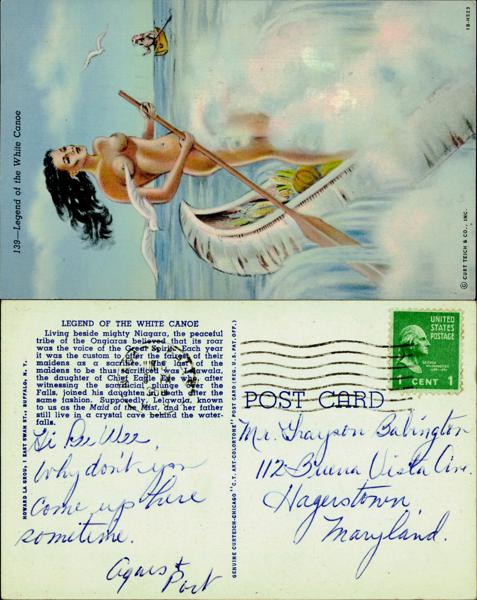 139—Legend of the White Canoe
1B-H523
© CURT TEICH & CO., INC.
LEGEND OF THE WHITE CANOE
Living beside mighty Niagara, the peaceful
tribe of the Ongiaras believed that its roar
was the voice of the Great Spirit. Each year
it was the custom to offer the fairest of their
maidens as a sacrifice. The last of the
maidens to be thus sacrificed was Lelawala,
the daughter of Chief Eagle Eye who, after
witnessing the sacrificial plunge over the
Falls, joined his daughter in death after the
same fashion. Supposedly, Lelawala, known
to us as the Maid of the Mist, and her father
still live in a crystal cave behind the water-
falls.
Hi Pee Wee,
Why don't you
come up here
sometime.
Agnes &
Port
HOWARD LA GROU, 1 EAST SWAN ST., BUFFALO, N. Y.
GENUINE CURTEICH-CHICAGO "C.T. ART-COLORTONE" POST CARD (REG. U.S. PAT. OFF.)
UNITED
STATES
POSTAGE
1 CENT 1
POST CARD
Mr. Grayson Babington
112 Buena Vista Av.
Hagerstown,
Maryland.